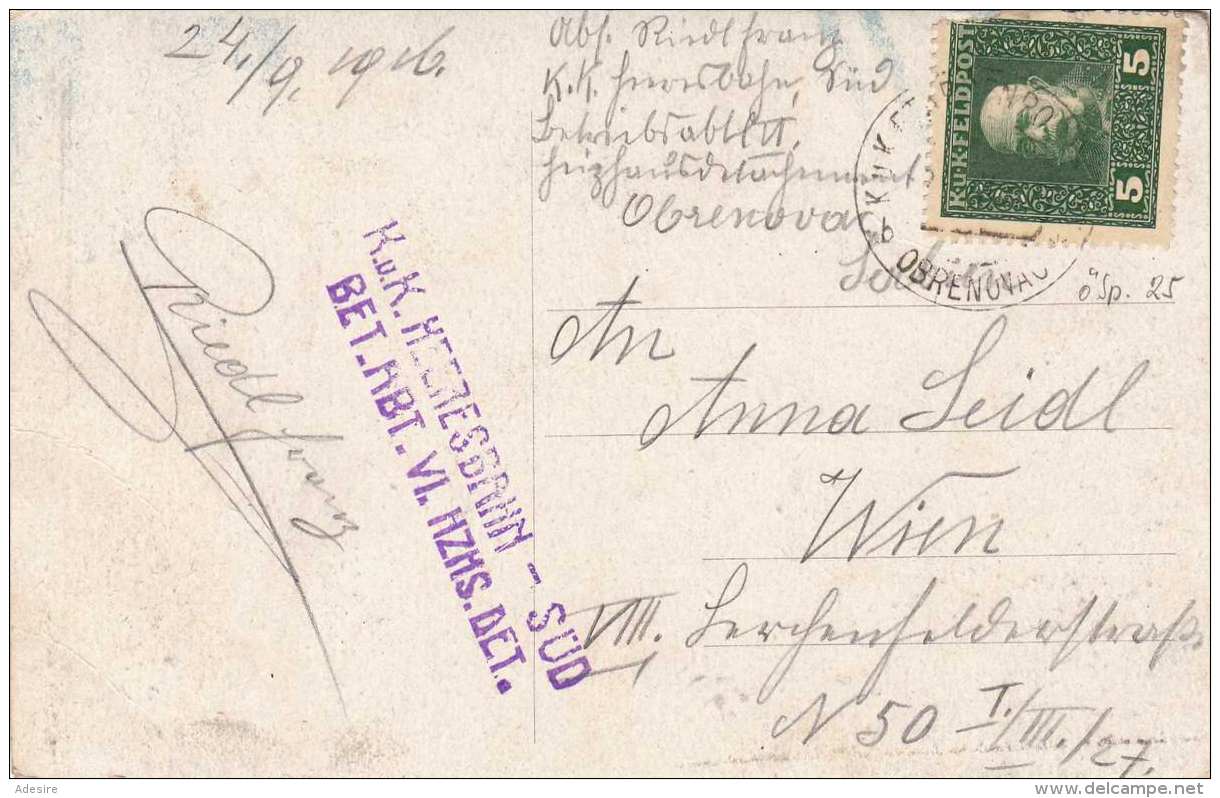 24./9. 1916.
Abs. Riedl Franz
K.k. Heeresbahn, Süd
Betriebsabt.
Heizhausdetachement
Obrenovac
K.u.K. FELDPOST
5 5
K.u.K.
OBRENOVAC
öSp. 25
Riedl Franz
K.u.K. HEERESBAHN - SÜD
BET. ABT. VI. HZHS. DET.
An
Anna Seidl
Wien
VIII. Lerchenfelderstraße
N 50 I./III./27.
Adesire
www.delcampe.net